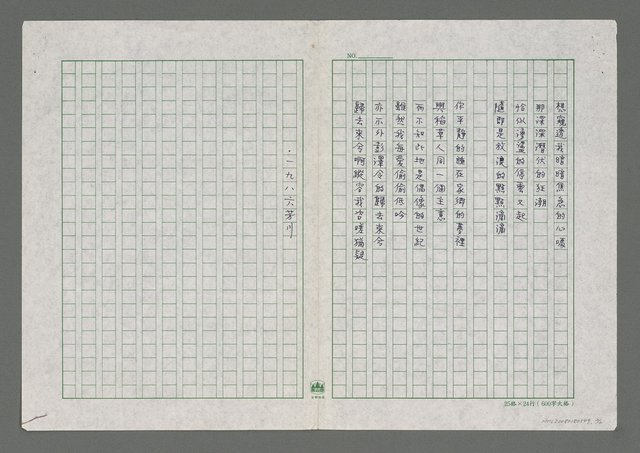 NO.
想窺透我暗暗焦慮的心嘆
那深深潛伏的狂潮
恰似湧盪的傳奧又起
隨即是秋浪的點點滴滴
你平靜的躺在家鄉的夢裡
與稻草人同一個主意
而不知此地是偶像的世紀
雖然我每愛偷偷低吟
亦不外彭澤令的歸去來兮
歸去來兮啊縱容我咨嗟猶疑
·一九八六芳川
25格×24行(600字大格)